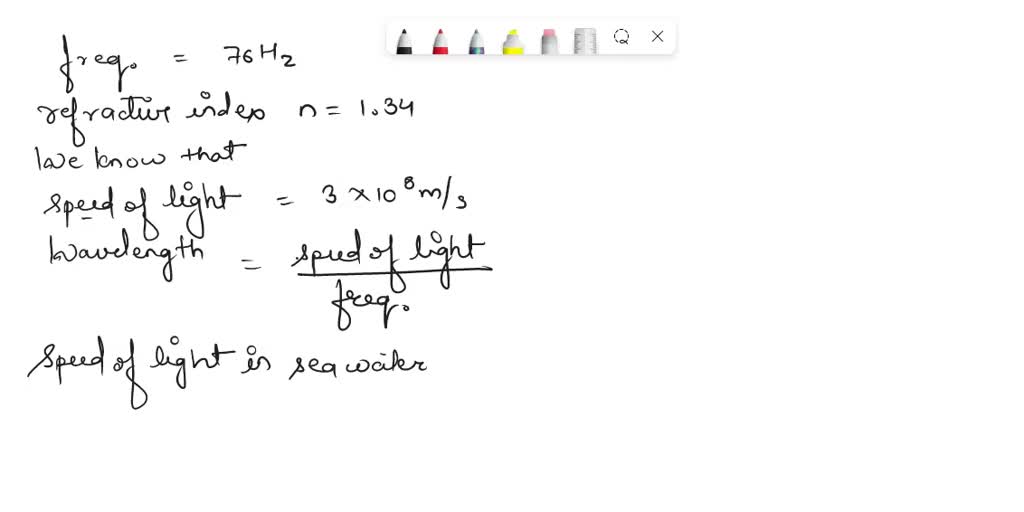 freq. = 76Hz
refractive index n = 1.34
We know that
speed of light = 3 × 10⁸ m/s
Wavelength = speed of light / freq.
Speed of light in sea water